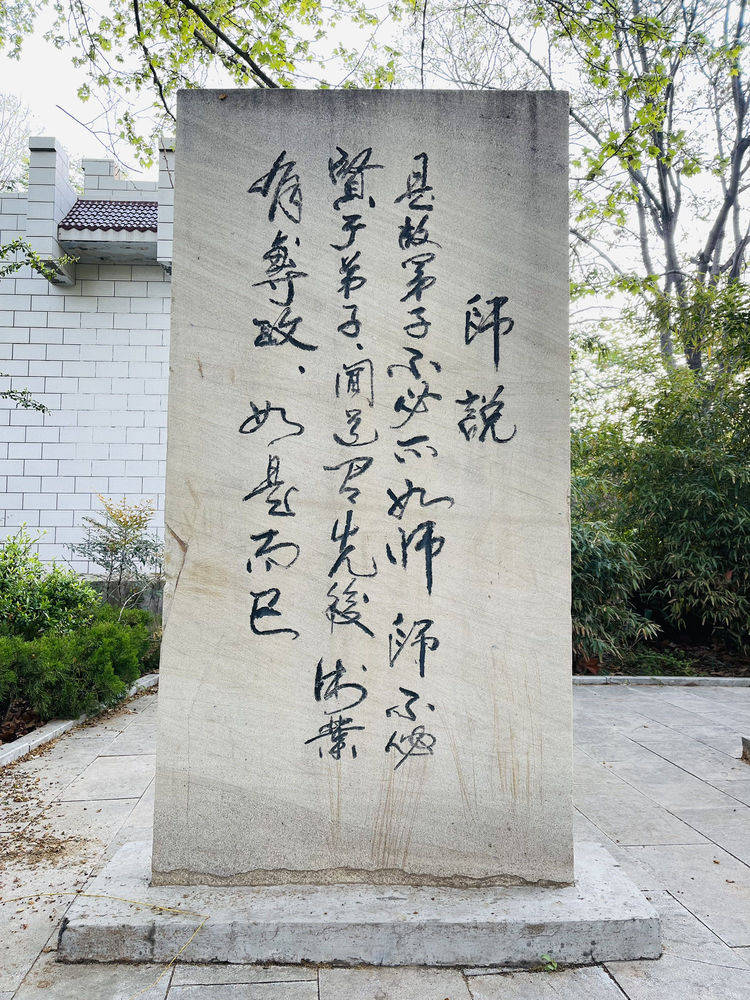 師說
是故弟子不必不如師 師不必
賢于弟子、聞道有先後 術業
有專攻、如是而已